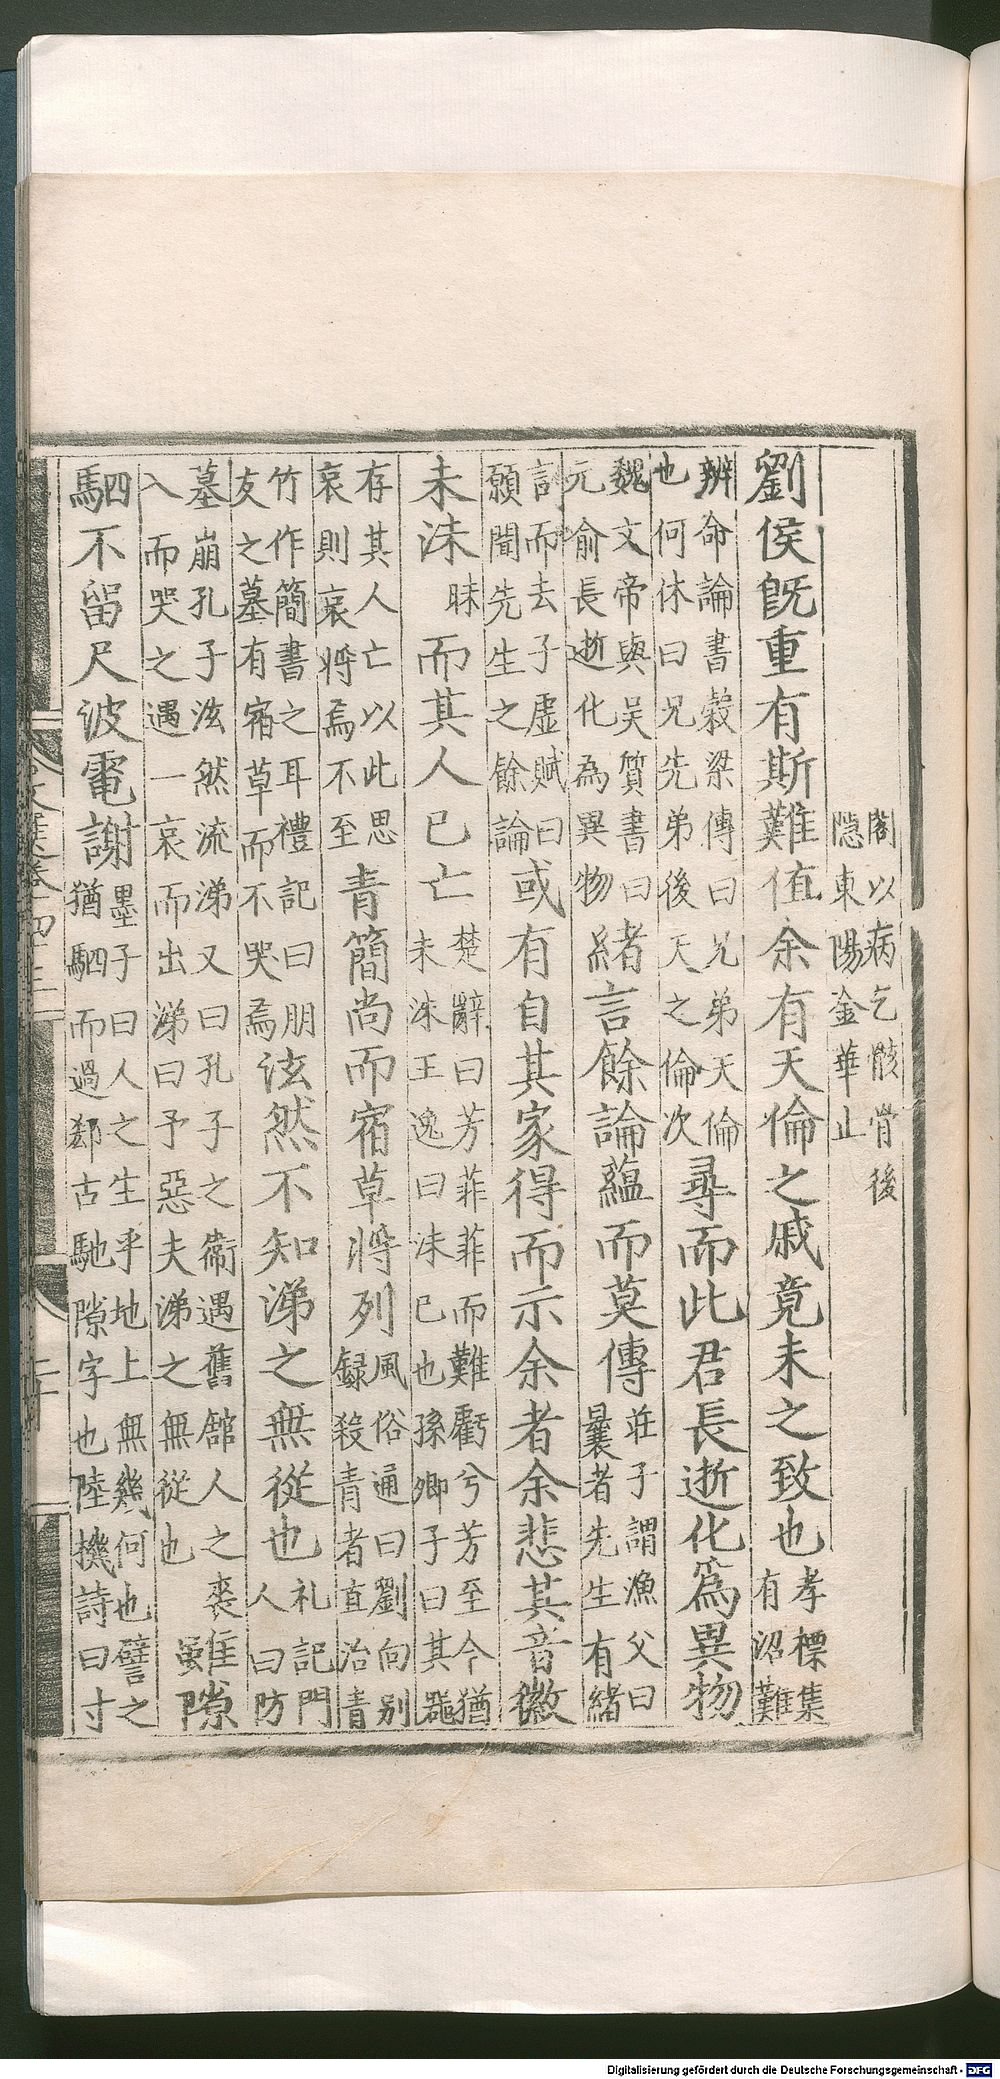 閣以病乞骸骨後
隐東陽金華止
劉侯旣重有斯難值余有天倫之戚竟未之致也
孝標集
有沼難
辨命論書穀梁傳曰兄弟天倫
也何休曰兄先弟後天之倫次
尋而此君長逝化爲異物
魏文帝與吳質書曰
元俞長逝化為異物
緒言餘論藴而莫傳
莊子謂漁父曰
曩者先生有緒
言而去子虛賦曰
願聞先生之餘論
或有自其家得而示余者余悲其音徽
未沬
昧
而其人已亡
楚辭曰芳菲菲而難虧兮芳至今猶
未沬王逸曰沬已也孫卿子曰其器
存其人亡以此思
哀則哀將焉不至
青簡尚而宿草將列
風俗通曰劉向别
録殺青者直治青
竹作簡書之耳禮記曰朋
友之墓有宿草而不哭焉
泫然不知涕之無從也
礼記門
人曰防
墓崩孔子泫然流涕又曰孔子之衛遇舊館人之喪
入而哭之遇一哀而出涕曰予惡夫涕之無從也
雖隙
駟不留尺波電謝
墨子曰人之生乎地上無幾何也譬之
猶駟而過郄古馳隙字也陸機詩曰寸
Digitalisierung gefördert durch die Deutsche Forschungsgemeinschaft - DFG